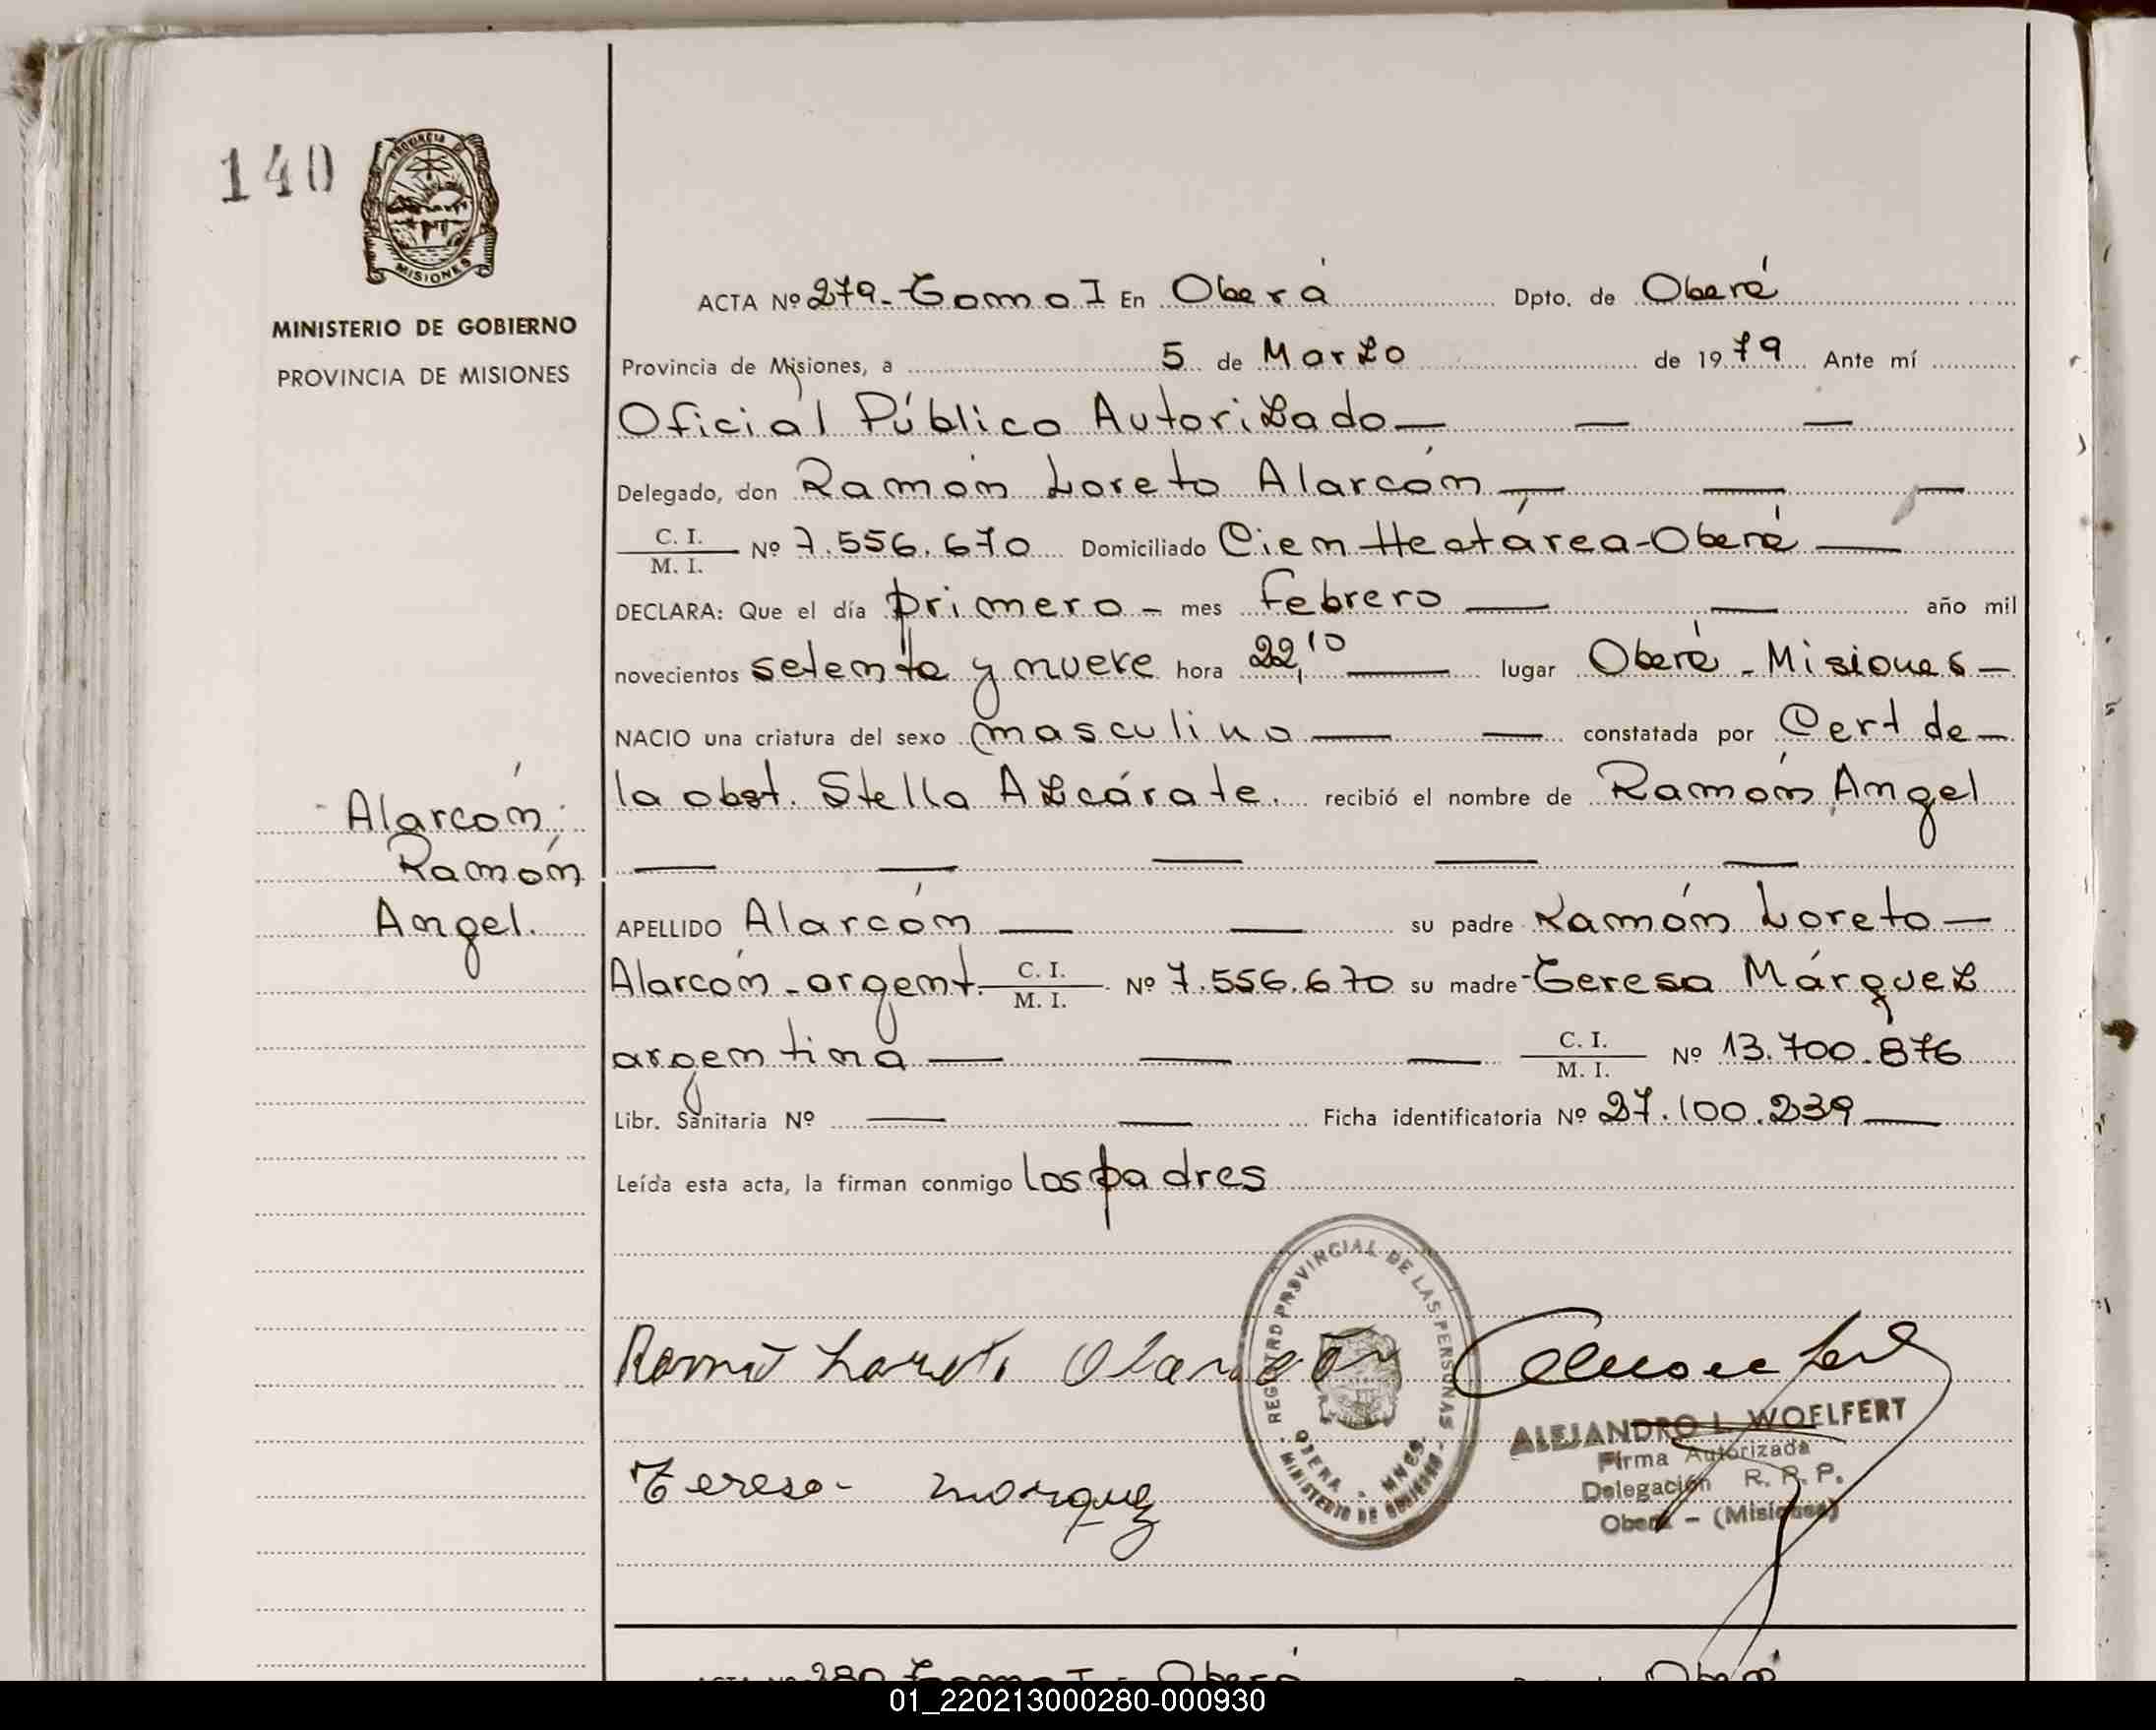 140
PROVINCIA DE
MISIONES
MINISTERIO DE GOBIERNO
PROVINCIA DE MISIONES
Alarcón,
Ramón
Angel.
ACTA Nº 279-Tomo I En Oberá Dpto. de Oberá
Provincia de Misiones, a 5 de Marzo de 1979 Ante mí
Oficial Público Autorizado — — —
Delegado, don Ramón Loreto Alarcón — — —
C. I. / M. I. Nº 7.556.670 Domiciliado Cien Hectárea-Oberá —
DECLARA: Que el día primero - mes Febrero — — año mil
novecientos setenta y nueve hora 22,10 — lugar Oberá - Misiones —
NACIO una criatura del sexo masculino — — constatada por Cert de —
la obst. Stella Azcárate. recibió el nombre de Ramón Angel
— — — — —
APELLIDO Alarcón — — su padre Ramón Loreto —
Alarcón - argent. C. I. / M. I. Nº 7.556.670 su madre Teresa Márquez
argentina — — — C. I. / M. I. Nº 13.700.876
Libr. Sanitaria Nº — — Ficha identificatoria Nº 27.100.239 —
Leída esta acta, la firman conmigo los padres
Ramón Loreto Alarcón
REGISTRO PROVINCIAL DE LAS PERSONAS
OBERA - MNES.
MINISTERIO DE GOBIERNO
ALEJANDRO L. WOELFERT
Firma Autorizada
Delegación R. P. P.
Oberá - (Misiones)
Teresa marquez
ACTA Nº 280 Tomo I En Oberá Dpto. de Oberá
01_220213000280-000930